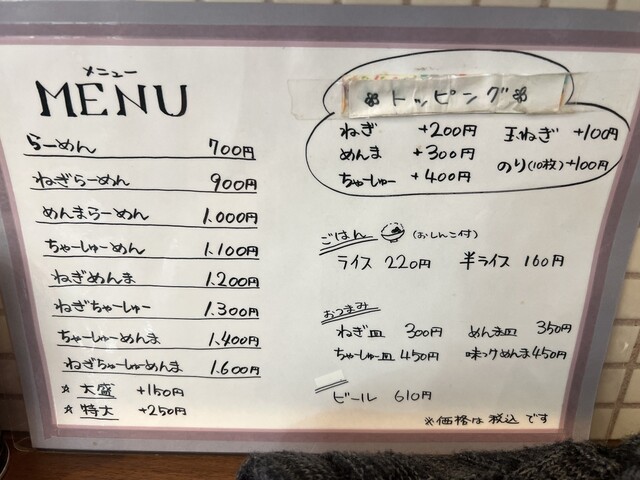 メニュー
MENU
らーめん 700円
ねぎらーめん 900円
めんまらーめん 1,000円
ちゃーしゅーめん 1,100円
ねぎめんま 1,200円
ねぎちゃーしゅー 1,300円
ちゃーしゅーめんま 1,400円
ねぎちゃーしゅーめんま 1,600円
☆ 大盛 +150円
☆ 特大 +250円
トッピング
ねぎ +200円 玉ねぎ +100円
めんま +300円 のり(10枚)+100円
ちゃーしゅー +400円
ごはん (おしんこ付)
ライス 220円 半ライス 160円
おつまみ
ねぎ皿 300円 めんま皿 350円
ちゃーしゅー皿 450円 味つけめんま 450円
ビール 610円
※価格は税込です